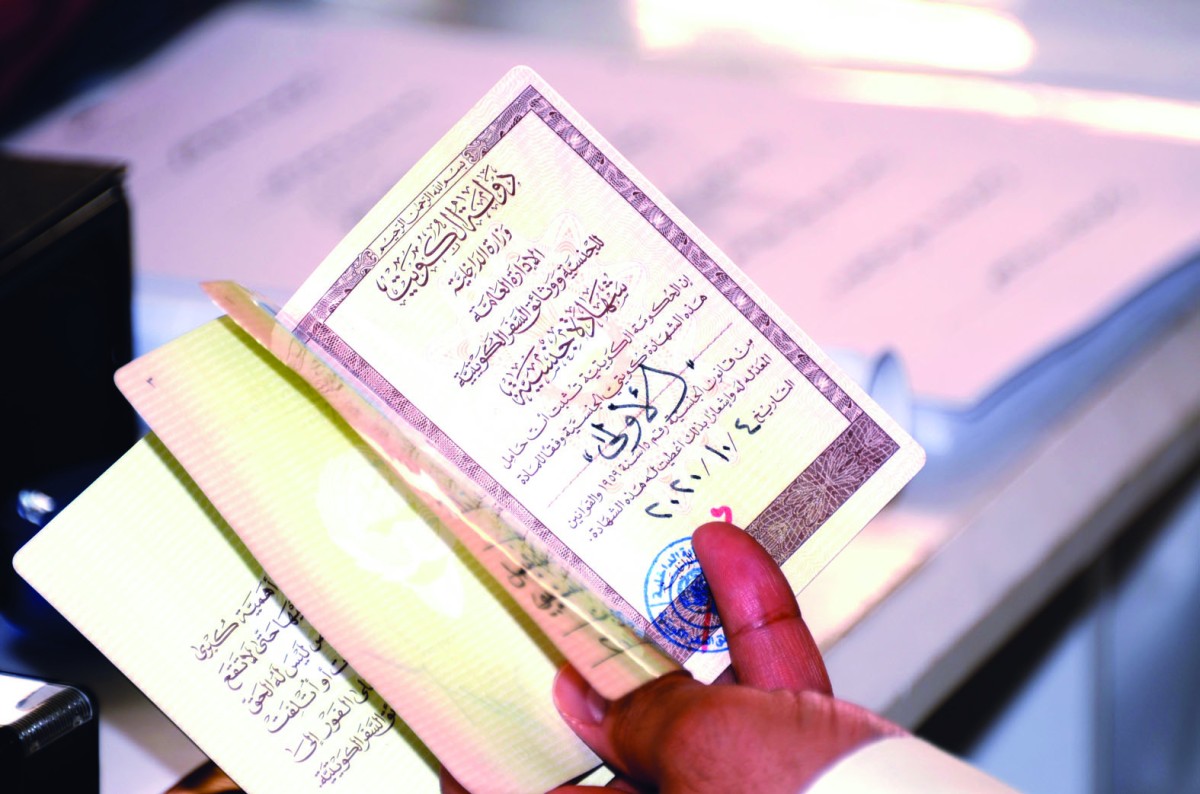 بسم الله الرحمن الرحيم
دولة الكويت
وزارة الداخلية
الإدارة العامة
للجنسية ووثائق السفر الكويتية
شهادة جنسية
إن الحكومة الكويتية تثبت أن حامل
هذه الشهادة كويتي الجنسية وفقا للمادة
"الأولى"
من قانون الجنسية رقم ١٥ لسنة ١٩٥٩ والقوانين
المعدلة له وإشعارا بذلك أعطيت له هذه الشهادة.
التاريخ ٢٠٢٠/١٠/٤
أهمية كبرى
حتى لا تقع
ليس له الحق
أو أتلفت
الفور إلى
السفر الكويتية.